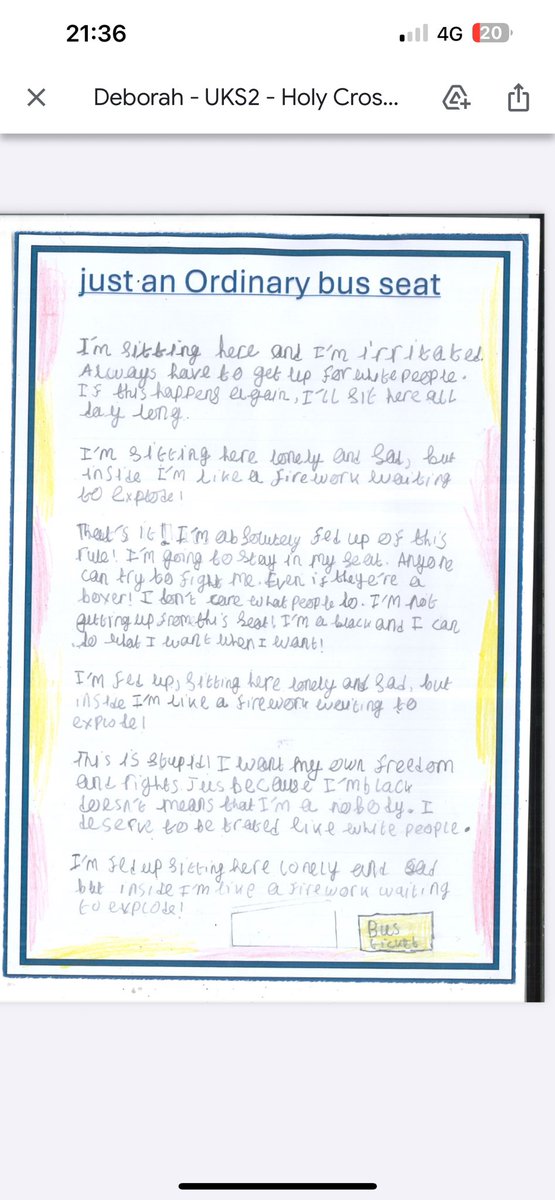 21:36
4G
20
Deborah - UKS2 - Holy Cros...
just an Ordinary bus seat
I'm sitting here and I'm irritated.
Always have to get up for white people.
If this happens again, I'll sit here all
day long.
I'm sitting here lonely and sad, but
inside I'm like a firework waiting
to explode!
That's it! I'm absolutely fed up of this
rule! I'm going to stay in my seat. Anyone
can try to fight me. Even if they're a
boxer! I don't care what people do. I'm not
getting up from this seat! I'm a black and I can
do what I want when I want!
I'm fed up, sitting here lonely and sad, but
inside I'm like a firework waiting to
explode!
This is stupid! I want my own freedom
and rights Jus because I'm black
doesn't means that I'm a nobody. I
deserve to be trated like white people.
I'm fed up sitting here lonely and sad
but inside I'm like a firework waiting
to explode!
Bus
ticket